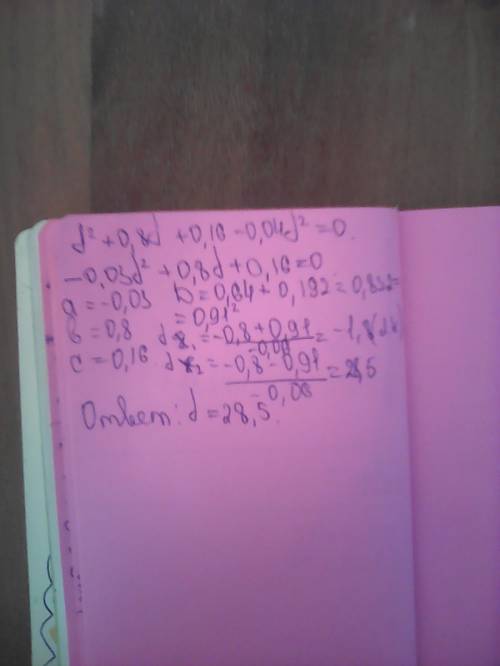 d² + 0,8d + 0,16 - 0,04d² = 0.
-0,03d² + 0,8d + 0,16 = 0
a = -0,03 D = 0,64 + 0,192 = 0,832 =
= 0,91²
b = 0,8 d₁ = -0,8 + 0,91 / -0,06 = -1,8
c = 0,16 d₂ = -0,8 - 0,91 / -0,06 = 28,5
Ответ: d = 28,5.